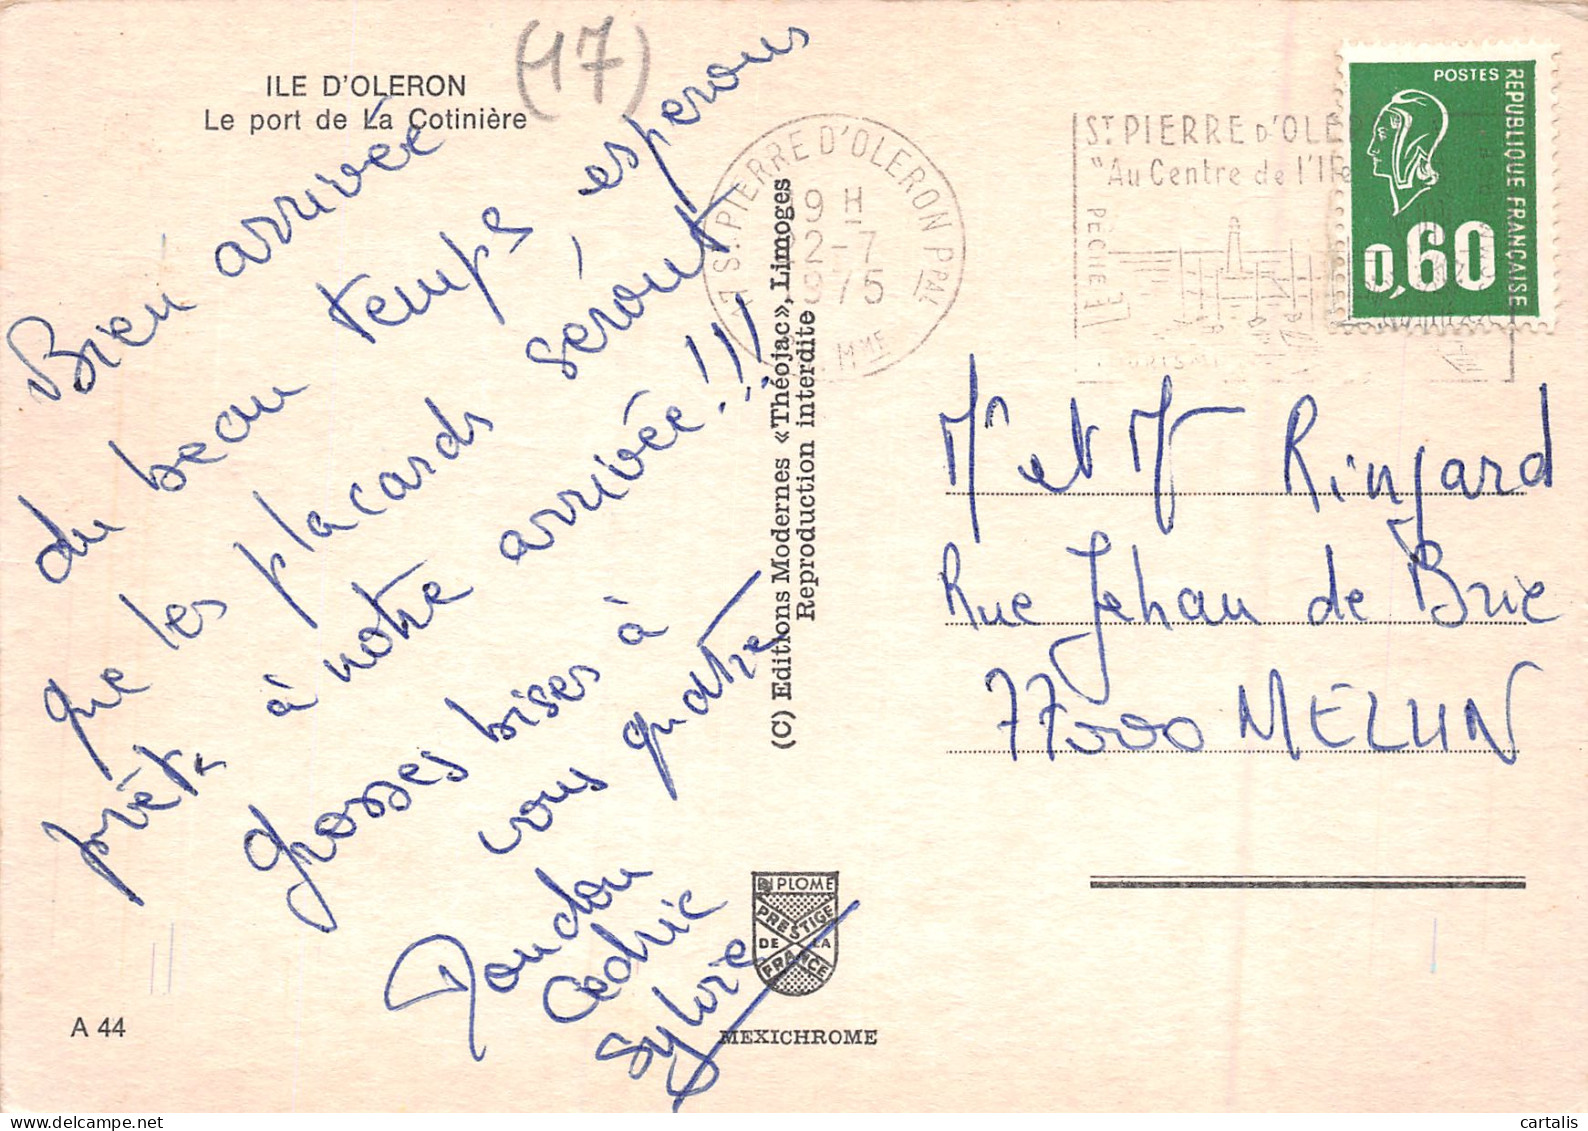 ILE D'OLERON
Le port de La Cotinière
(17)
Bien arrivée
du beau temps esperons
que les placards seront
prêts à notre arrivée!!!
grosses bises à
vous quatre
Doudou
Cedric
Sylvie
A 44
(C) Editions Modernes «Théojac», Limoges
Reproduction interdite
DIPLOME
PRESTIGE
DE LA
FRANCE
MEXICHROME
17 ST PIERRE D'OLERON PPAL
19 H
22-7
1975
CH. MME
ST PIERRE D'OLE
"Au Centre de l'Ile
PECHE
POSTES
REPUBLIQUE FRANÇAISE
0,60
Mr et Mr Ringard
Rue Jehan de Brie
77000 MELUN
cartalis